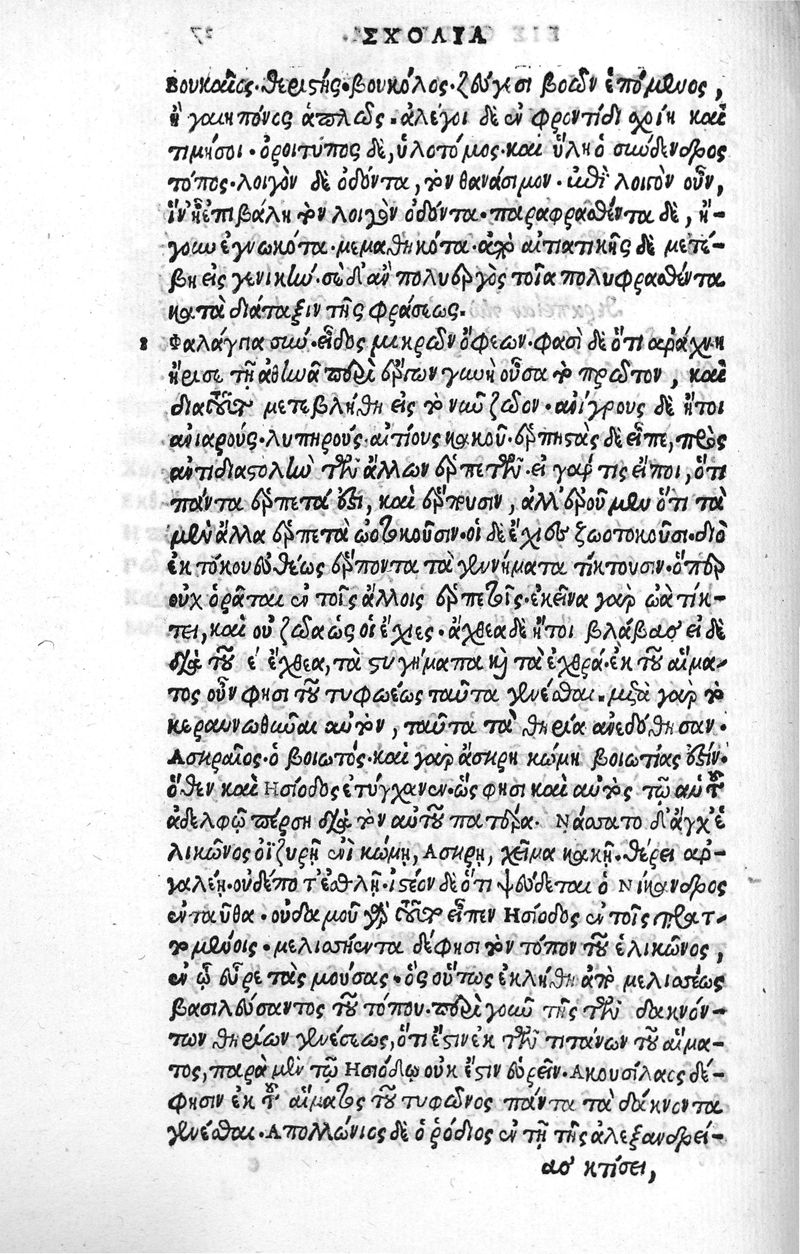 ΣΧΟΛΙΑ
Βουκαῖος· θεριστής· βουκόλος· ζεύγεσι βοῶν ἑπόμενος,
ἢ γαιηπόνος ἁπλῶς. ἀλέγοι δὲ ἐν φροντίδι σχοίη καὶ
τιμήσοι· ὀροιτύπος δὲ, ὑλοτόμος· καὶ ὕλη ὁ σύνδενδρος
τόπος· λοιγὸν δὲ ὀδόντα, τὸν θανάσιμον· ἐπὶ λοιπὸν οὖν,
ἵν' ᾖ ἐπιβάλη τὸν λοιγὸν ὀδόντα· παραφρασθέντα δὲ, ἤ-
γουν ἐγνωκότα· μεμαθηκότα. ἀπὸ αἰτιατικῆς δὲ μετέ-
βη εἰς γενικὴν· σὺ δ' ἂν πολυεργὸς τοῖα πολυφρασθέντα
κατὰ διάταξιν τῆς φράσεως.
Φαλάγγια σὺν· εἶδος μικρῶν ὄφεων· φασὶ δὲ ὅτι ἀράχνη
ἤρισε τῇ ἀθηνᾶ περὶ ἔργων γυνὴ οὖσα τὸ πρῶτον, καὶ
διὰ τοῦτο μετεβλήθη εἰς τὸ νῦν ζῶον· ἀνίγρους δὲ ἤτοι
ἀνιαροὺς· λυπηρούς· αἰτίους κακοῦ· ἑρπηστὰς δὲ εἶπε, πρὸς
ἀντιδιαστολὴν τῶν ἄλλων ἑρπετῶν· εἰ γάρ τις εἴποι, ὅτι
πάντα ἑρπετά ἐστι, καὶ ἕρπουσιν, ἀλλ' ἐροῦμεν ὅτι τὰ
μὲν ἄλλα ἑρπετὰ ὠοτοκοῦσιν· οἱ δὲ ἔχιες ζωοτοκοῦσι· διὸ
ἐκ τόκου εὐθέως ἕρποντα τὰ γεννήματα τίκτουσιν· ὅπερ
οὐχ ὁρᾶται ἐν τοῖς ἄλλοις ἑρπετοῖς· ἐκεῖνα γὰρ ὠὰ τίκ-
τει, καὶ οὐ ζῶα ὡς οἱ ἔχιες· ἄχθεα δὲ ἤτοι βλάβας εἰ δὲ
διὰ τοῦ ε ἔχθεα, τὰ στυγήματα καὶ τὰ ἐχθρά· ἐκ τοῦ αἵμα-
τος οὖν φησι τοῦ τυφωέως ταῦτα γενέσθαι. μετὰ γὰρ τὸ
κεραυνωθῆναι αὐτὸν, ταῦτα τὰ θηρία ἀνεδόθησαν.
Ασκραῖος· ὁ βοιωτός· καὶ γὰρ ἄσκρη κώμη βοιωτίας ἐστίν·
ὅθεν καὶ Ησίοδος ἐτύγχανεν· ὥς φησι καὶ αὐτὸς τῶ αὐτοῦ
ἀδελφῶ πέρση διὰ τὸν αὐτοῦ πατέρα. Νάσσατο δ' ἄγχ' ἑ
λικῶνος οἰζυρῇ ἐνὶ κώμῃ, Ασκρῃ, χεῖμα κακῇ. θέρει ἀρ-
γαλέῃ· οὐδέποτ' ἐσθλῇ· ἰστέον δὲ ὅτι ψεύδεται ὁ Νίκανδρος
ἐνταῦθα· οὐδαμοῦ γὰρ τοῦτο εἶπεν Ησίοδος ἐν τοῖς πραττ-
τομένοις· μελισσήεντα δέ φησι τὸν τόπον τοῦ ἑλικῶνος,
ἐν ᾧ εὗρε τὰς μούσας· ὃς οὕτως ἐκλήθη ἀπὸ μελισσέως
βασιλεύσαντος τοῦ τόπου· περὶ γοῦν τῆς τῶν δακνόν-
των θηρίων γενέσεως, ὅτι ἔστιν ἐκ τῶν τιτάνων τοῦ αἵμα-
τος, παρὰ μὲν τῷ Ησιόδῳ οὐκ ἔστιν εὑρεῖν· Ακουσίλαος δέ-
φησιν ἐκ τοῦ αἵματος τοῦ τυφῶνος πάντα τὰ δάκνοντα
γενέσθαι. Απολλώνιος δὲ ὁ ρόδιος ἐν τῇ τῆς ἀλεξανδρεί-
ας κτίσει,